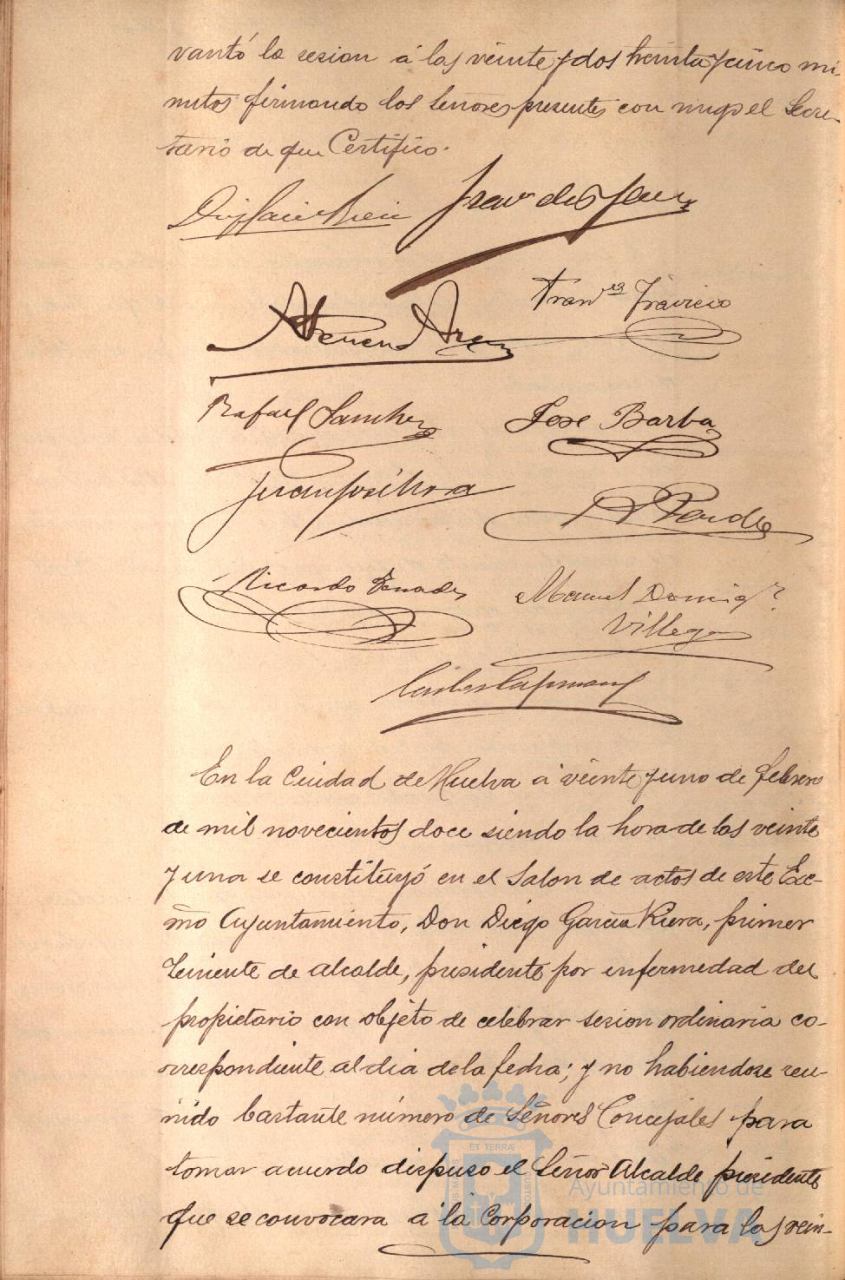 vantó la sesion á las veinte y dos treinta y cinco mi-
nutos firmando los Señores presentes con migo el Secre-
tario de que Certifico.
Franco Travieso
Rafael Sanchez
José Barba
Juan José Mora
Ricardo Terrades
Manuel Doming.
Villegas
En la Ciudad de Huelva á veinte y uno de febrero
de mil novecientos doce siendo la hora de las veinte
y una se constituyó en el Salon de actos de este Exc-
mo Ayuntamiento, Don Diego Garcia Riera, primer
teniente de alcalde, presidente por enfermedad del
propietario con objeto de celebrar sesion ordinaria co-
rrespondiente al dia de la fecha; y no habiendose reu-
nido bastante número de Señores Concejales para
tomar acuerdo dispuso el Señor Alcalde presidente
que se convocara á la Corporacion para las vein-
ET TERRAE
Ayuntamiento de
HUELVA